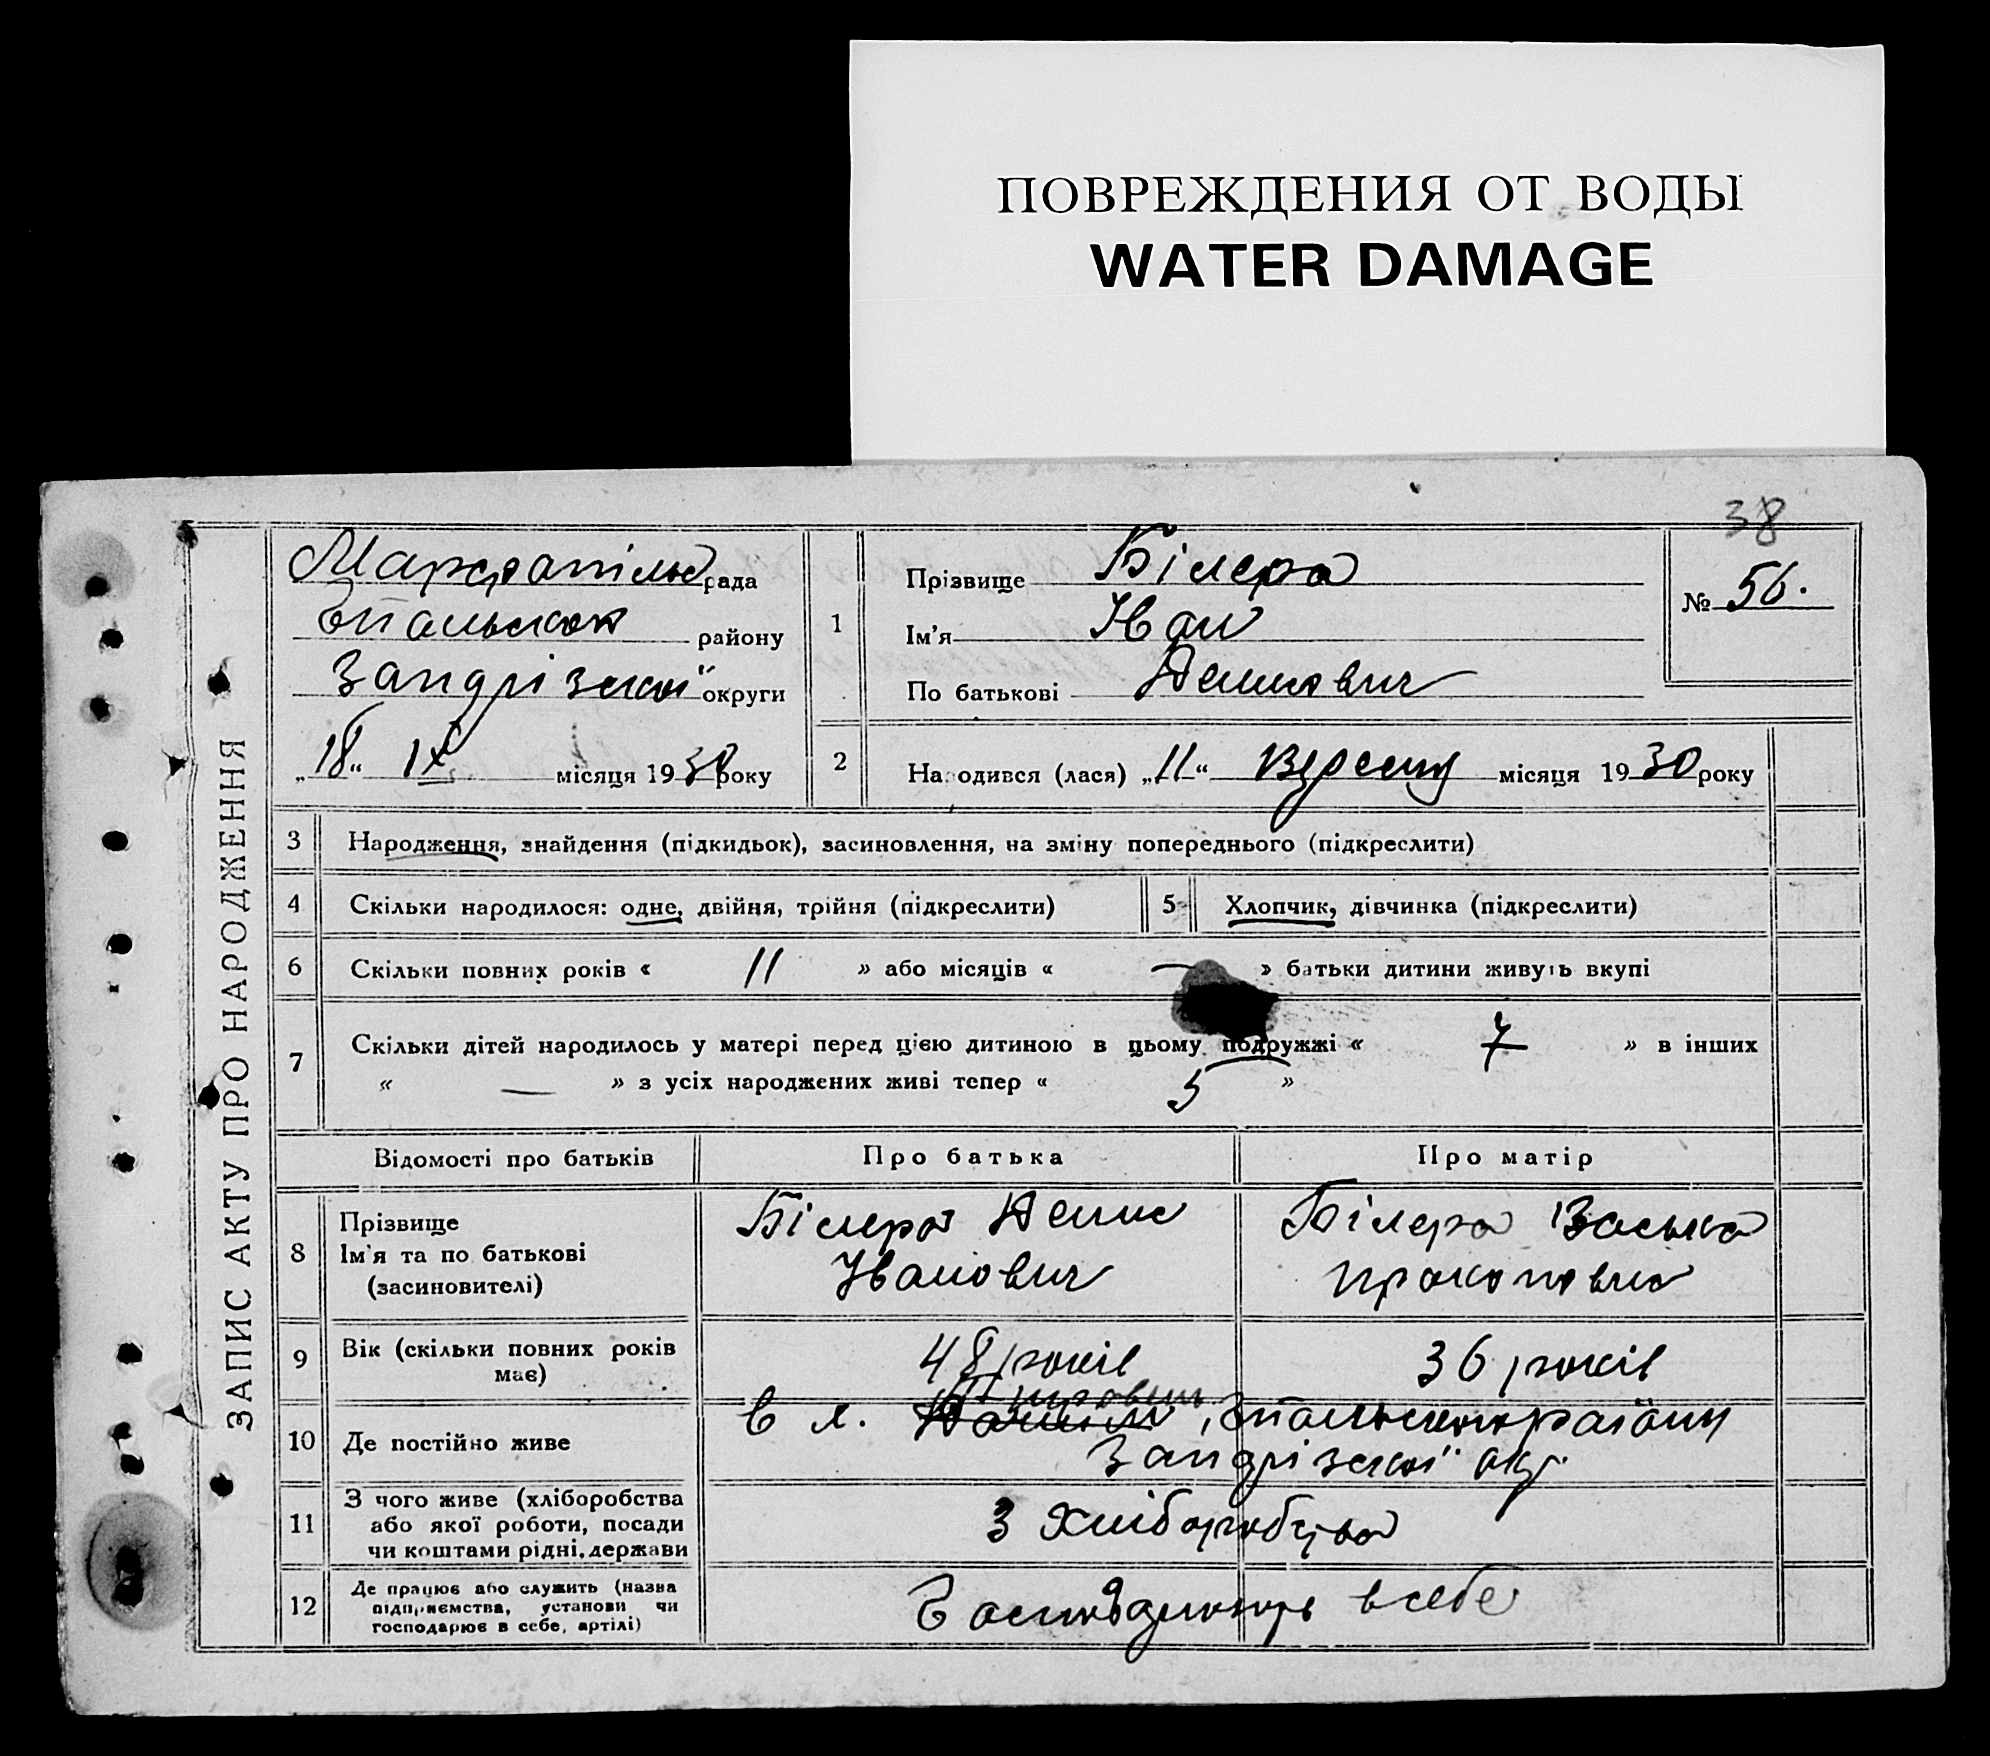 ПОВРЕЖДЕНИЯ ОТ ВОДЫ
WATER DAMAGE
38
ЗАПИС АКТУ ПРО НАРОДЖЕННЯ
рада
району
округи
„18“ IX місяця 1930 року
1
Прізвище Білера
Ім'я Іван
По батькові Денисович
№ 56.
2
Народився (лася) „11“ Вересня місяця 1930 року
3 Народження, знайдення (підкидьок), засиновлення, на зміну попереднього (підкреслити)
4 Скільки народилося: одне, двійня, трійня (підкреслити)
5 Хлопчик, дівчинка (підкреслити)
6 Скільки повних років « 11 » або місяців « — » батьки дитини живуть вкупі
7 Скільки дітей народилось у матері перед цією дитиною в цьому подружжі « 7 » в інших
« — » з усіх народжених живі тепер « 5 »
Відомості про батьків Про батька Про матір
8 Прізвище
Ім'я та по батькові
(засиновителі)
Білера Денис
Іванович
Білера Васька
9 Вік (скільки повних років
має)
48 років 36 років
10 Де постійно живе
в х.
окр.
11 З чого живе (хліборобства
або якої роботи, посади
чи коштами рідні, держави
З хліборобства
12 Де працює або служить (назва
підприємства, установи чи
господарює в себе, артілі)
в себе